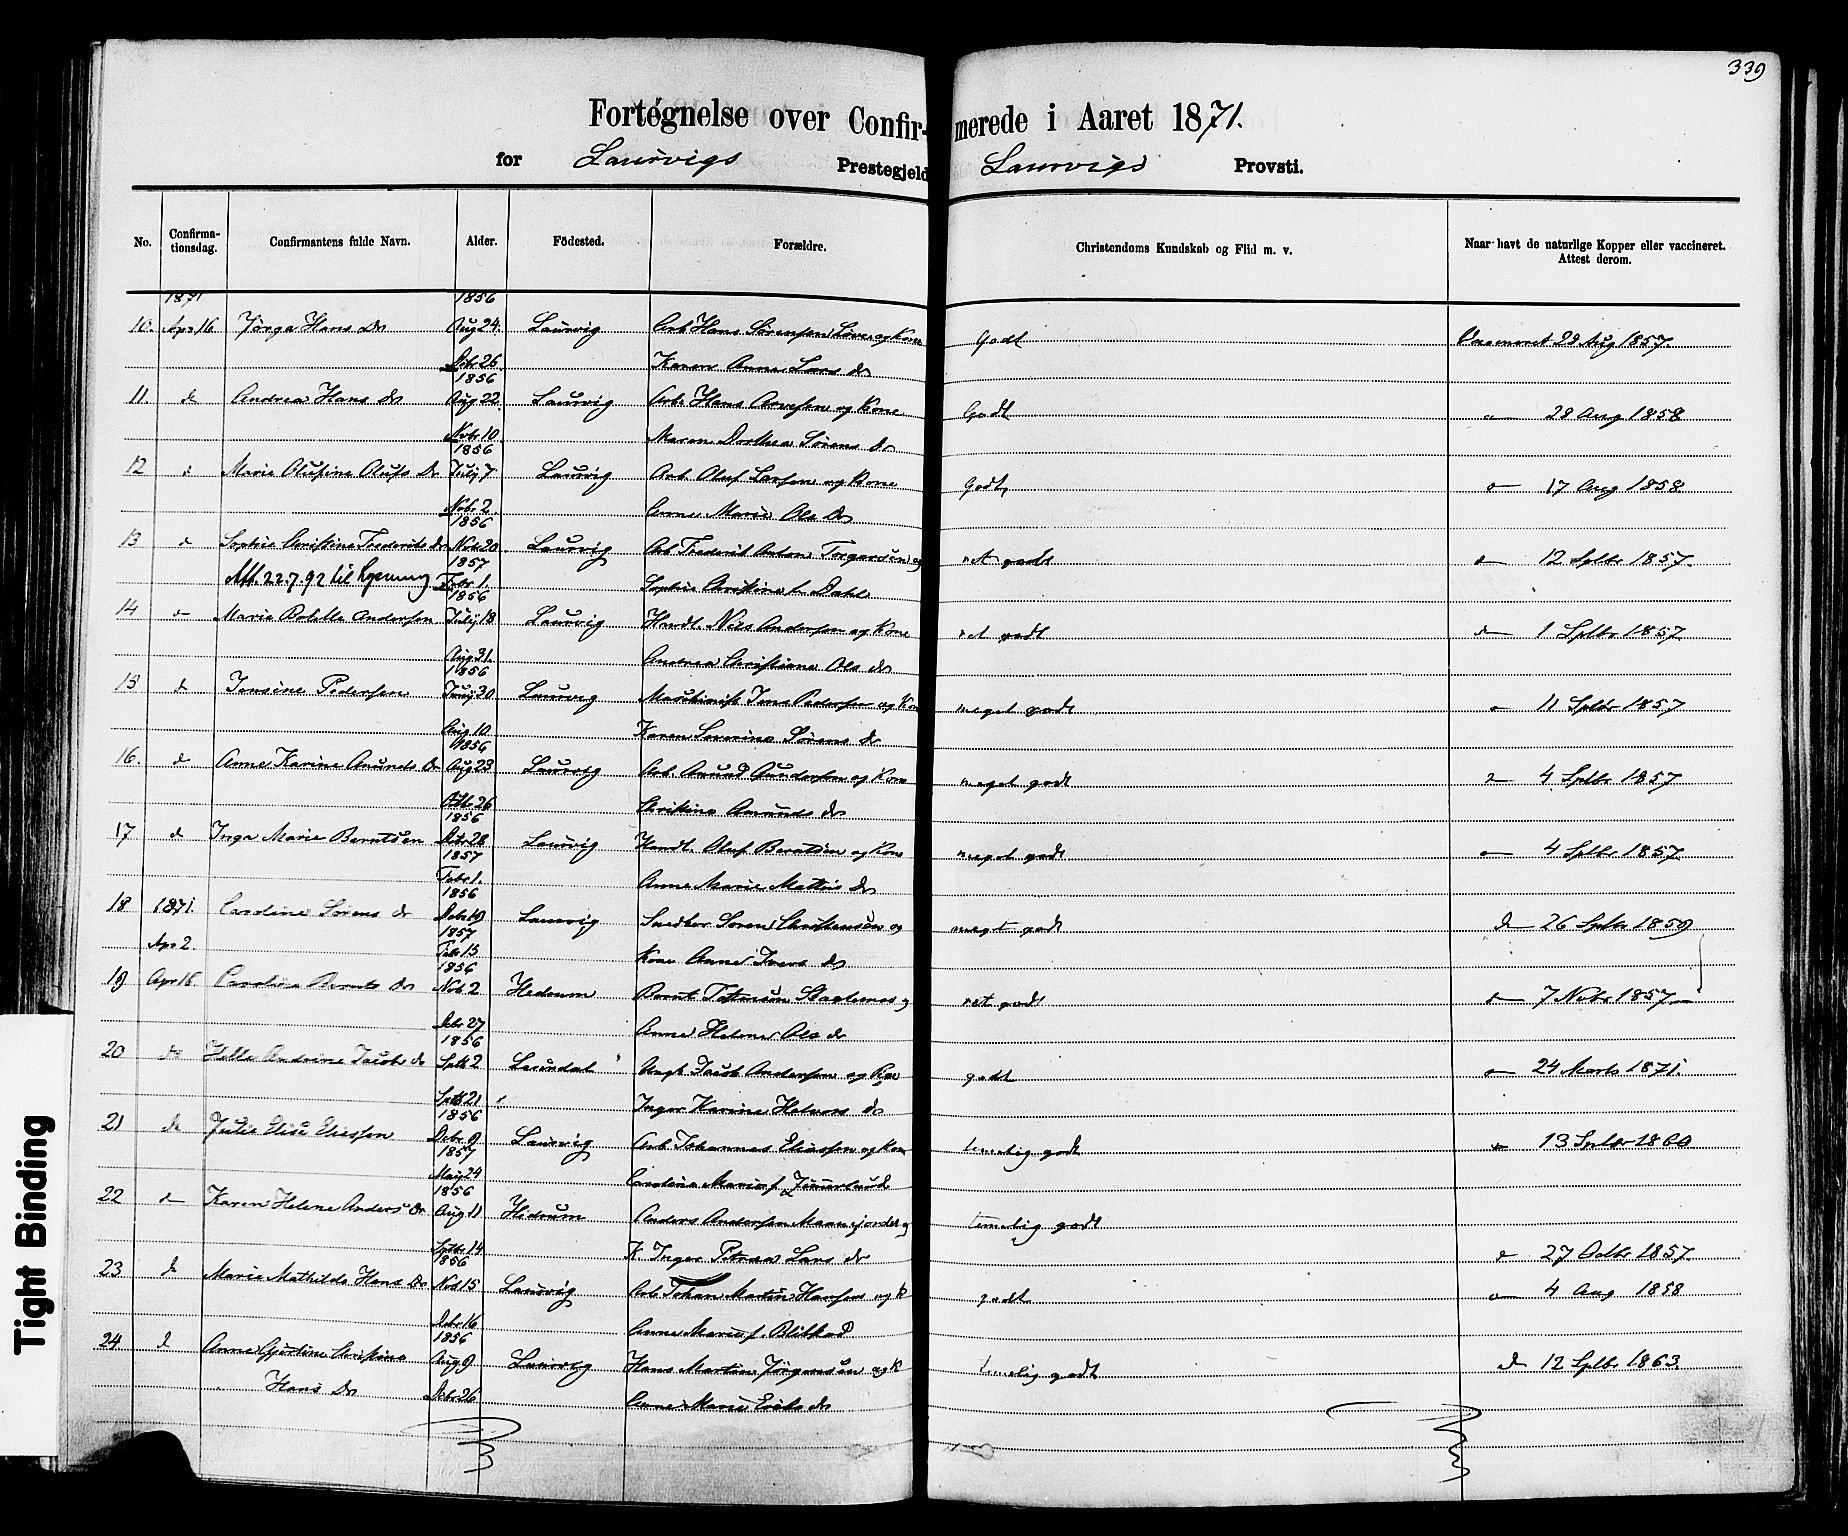 339
Fortegnelse over Confirmerede i Aaret 1871.
for Laurvigs Prestegjeld Laurvigs Provsti.
No. Confirmationsdag. Confirmantens fulde Navn. Alder. Födested. Forældre. Christendoms Kundskab og Flid m. v. Naar havt de naturlige Kopper eller vaccineret. Attest derom.
1871 1856
10. Apr 16 Hans Dr Aug 24. Laurvig Arb Hans Sørensen og Kone Godt 28 Aug 1857.
Dcbr 26 Karen Anne Lars dr
1856
11. d Andrea Hans dr Aug 22. Laurvig Arb. Hans og Kone Godt 28 Aug 1858
Nvbr 10 Maren Dorthea Sørens dr
1856
12 d Marie Olufine Olufs Dr July 7 Laurvig Arb. Oluf Larsen og Kone Godt 17 Aug 1858
Nvbr 2. Anne Marie Ols Dr
1856
13 d Sophie Christine Frederiks dr Nvb 20 Laurvig Arb Frederik Anton og ret godt 12 Sptbr 1857.
1857
Att. 22.7.92 til Febr 1. Sophie Christine f. Dahl
1856
14 Marie Andersen July 18 Laurvig Handl. Nils Andersen og Kone ret godt 1 Sptbr 1857
Aug 21. Andrea Christiane Ols dr
1856
15 d Jensine Pedersen 30 Laurvig Maskinist Jens Pedersen og Kone meget godt 11 Sptbr 1857
Aug 10 Karen Severine Sørens dr
1856
16. d Anne Karine Anunds Dr Aug 23 Laurvig Arb. Anund Gundersen og Kone meget godt 4 Sptbr 1857
26 Christine Amunds dr
1856
17 d Inga Marie Berntsen 28 Laurvig Handl. Oluf Berntsen og Kone meget godt 4 Sptbr 1857
1857
Febr 1. Anne Marie Mathis dr
1856
18 1871. Caroline Sørens dr 19 Laurvig Snedker Søren Christensen og meget godt d 26 Sptbr 1859
1857
Apr 2. Febr 15 Kone Anne Ivers dr
1856
19 Apr 16. Caroline Bernts dr Nvb 2 Hedrum Bernt og ret godt 7 Nvbr 1857
Dcbr 27 Anne Helene Ols dr
1856
20 do Helle Andrine Jacobs dr Sptb 2 Jacob Andersen og Kone godt 24 Marts 1871.
Sptb 21 Inger Karine Helvors dr
1856
21 do Julie Elise Eliassen Dcbr 9 Laurvig Arb Johannes Eliassen og Kone temelig godt 13 Sptbr 1860
1857
May 24 Caroline Marie f.
1856
22 Karen Helene Anders Dr Aug 11 Hedrum Anders Andersen og temelig godt
Sptbr 14 K Inger Petrea Lars dr 27 Octbr 1857.
1856
23 d Marie Mathilde Hans Dr Nvb 15 Laurvig Arb Johan Martin Hansen og K godt 4 Aug 1858
Dcbr 16 Anne Marie f.
1856
24 d Anne Gjertine Christine Aug 9 Laurvig Hans Martin Jørgensen og K temelig godt d 12 Sptbr 1863.
Hans Dr Dcbr 26 Anne Marie Eriks dr
Tight Binding